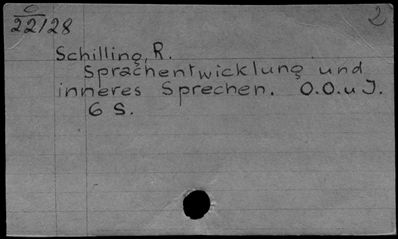 C
22/28
2
Schilling, R.
Sprachentwicklung und
inneres Sprechen. O.O.u J.
6 S.